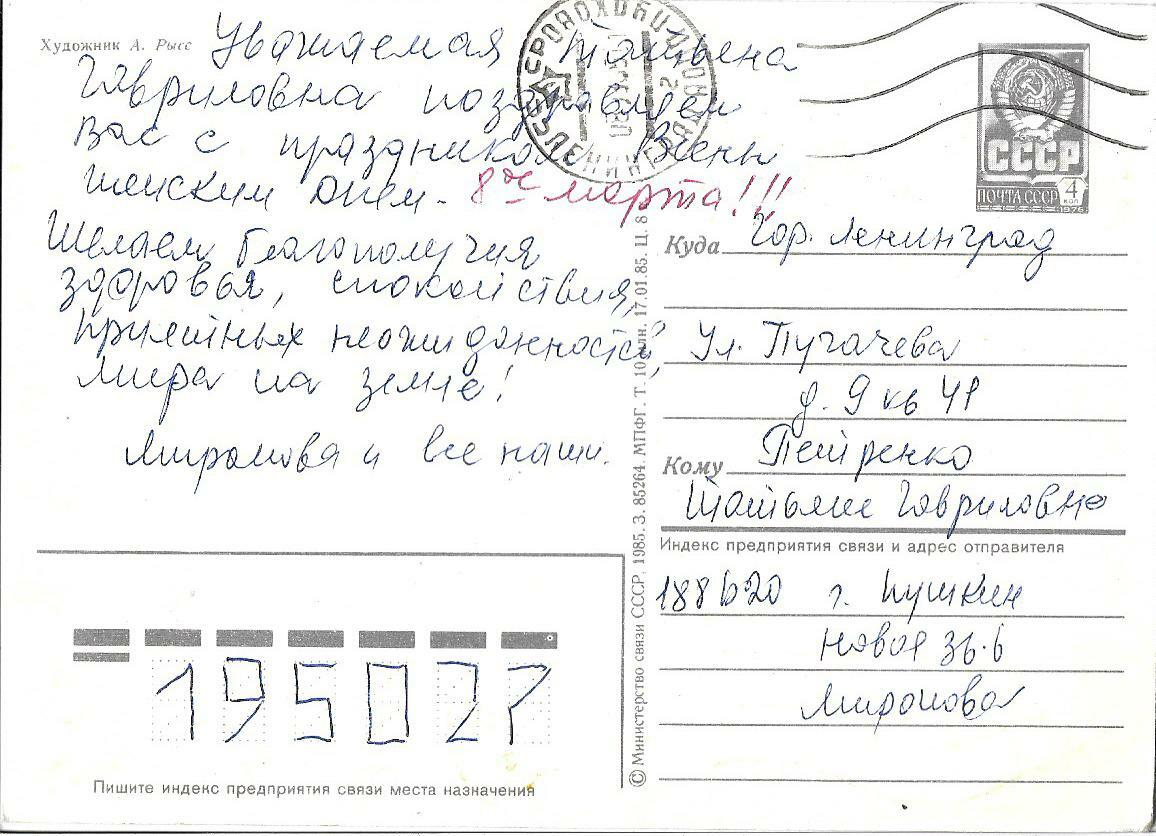 Художник А. Рысс
Уважаемая Татьяна
Гавриловна поздравляем
Вас с праздником Весны
женским днем - 8ое марта!!!
Желаем благополучия
здоровья, спокойствия,
приятных неожиданностей,
Мира на земле!
Миронова и все наши.
СССР
ПОЧТА СССР 4 КОП
1976
Куда Гор. Ленинград
Ул. Пугачева
д. 9 кв 41
Кому Петренко
Татьяне Гавриловне
Индекс предприятия связи и адрес отправителя
188620 г. Пушкин
Новая
Миронова
195027
Пишите индекс предприятия связи места назначения
© Министерство связи СССР, 1985. З. 85264. МПФГ. Т. 10 млн. 17.01.85. Ц.